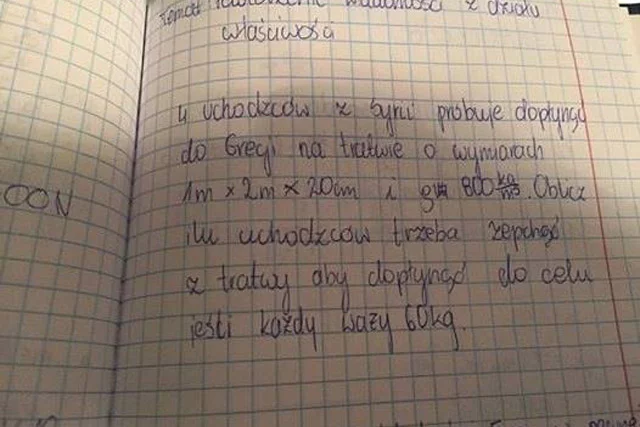 Temat z działu
właściwości
4 uchodźców z Syrii próbuje dopłynąć
do Grecji na tratwie o wymiarach
1m × 2m × 20cm i 800 kg/m³. Oblicz
ilu uchodźców trzeba zepchnąć
z tratwy aby dopłynąć do celu
jeśli każdy waży 60kg.
OON